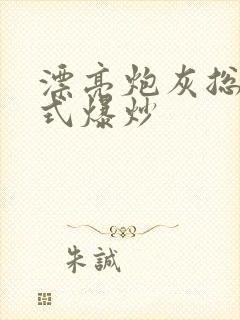 漂亮炮灰总
式爆炒
朱誠